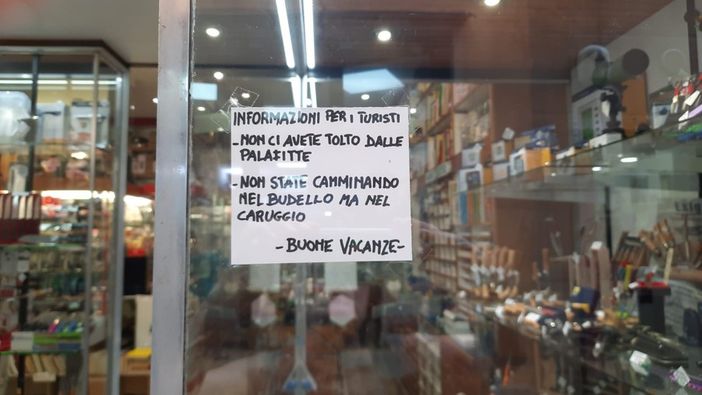 INFORMAZIONI PER I TURISTI
- NON CI AVETE TOLTO DALLE
PALAFITTE
- NON STATE CAMMINANDO
NEL BUDELLO MA NEL
CARUGGIO
- BUONE VACANZE -